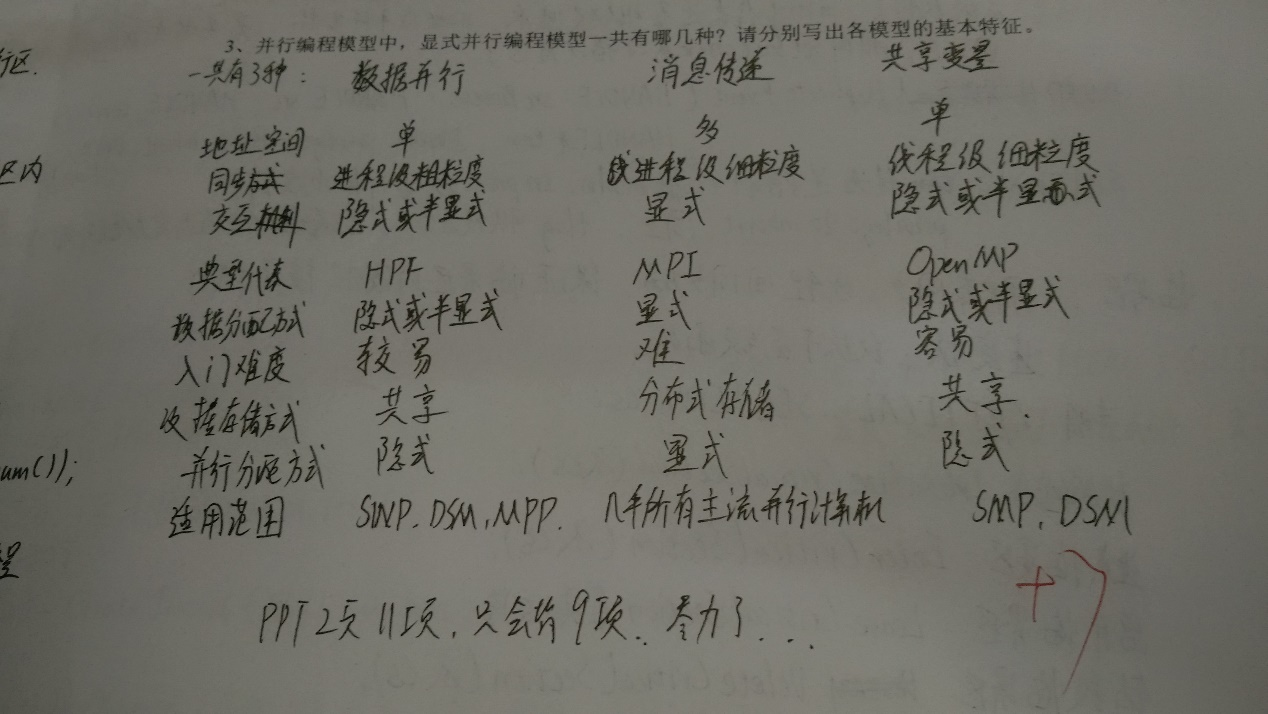 3、并行编程模型中，显式并行编程模型一共有哪几种？请分别写出各模型的基本特征。
行区.
一共有3种： 数据并行 消息传递 共享变量
地址空间 单 多 单
区内
同步方式 进程级粗粒度 进程级细粒度 线程级细粒度
交互机制 隐式或半显式 显式 隐式或半显式
典型代表 HPF MPI OpenMP
数据分配方式 隐式或半显式 显式 隐式或半显式
入门难度 较易 难 容易
数据存储方式 共享 分布式存储 共享.
um());
并行分配方式 隐式 显式 隐式
适用范围 SMP. DSM, MPP. 几乎所有主流并行计算机 SMP. DSM
PPT 2页11项, 只会背9项.. 尽力了...
+7